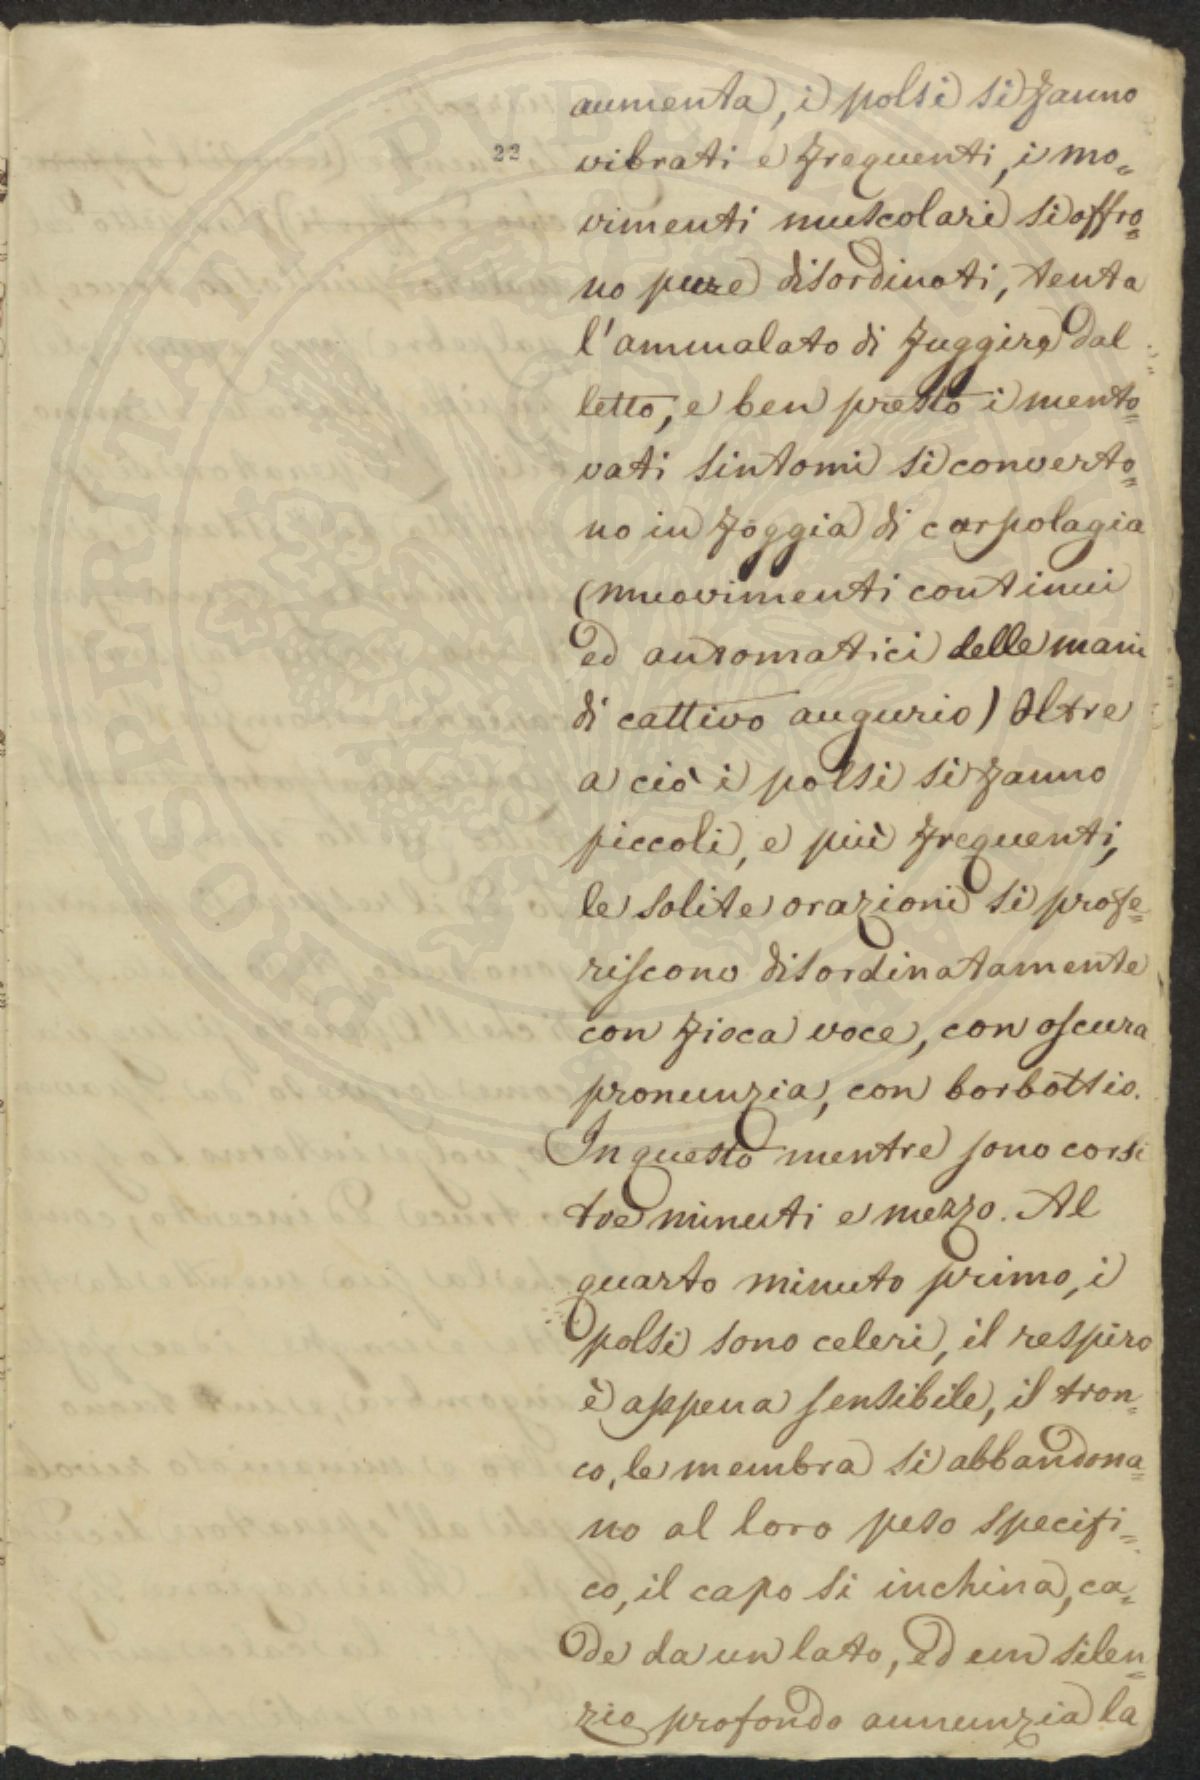 aumenta, i polsi si fanno
22
vibrati e frequenti, i mo=
vimenti muscolari si offro=
no pure disordinati, tenta
l'ammalato di fuggire dal
letto, e ben presto i mento=
vati sintomi si converto=
no in foggia di carpolagia
(muovimenti continui
ed automatici delle mani
di cattivo augurio) Oltre
a ciò i polsi si fanno
piccoli, e più frequenti,
le solite orazioni si profe=
riscono disordinatamente
con fioca voce, con oscura
pronunzia, con borbottio.
In questo mentre sono corsi
tre minuti e mezzo. Al
quarto minuto primo, i
polsi sono celeri, il respiro
è appena sensibile, il tron=
co, le membra si abbandona=
no al loro peso specifi=
co, il capo si inchina, ca=
de da un lato, ed un silen=
zio profondo annunzia la
PROSPERITATI PVBLICAE